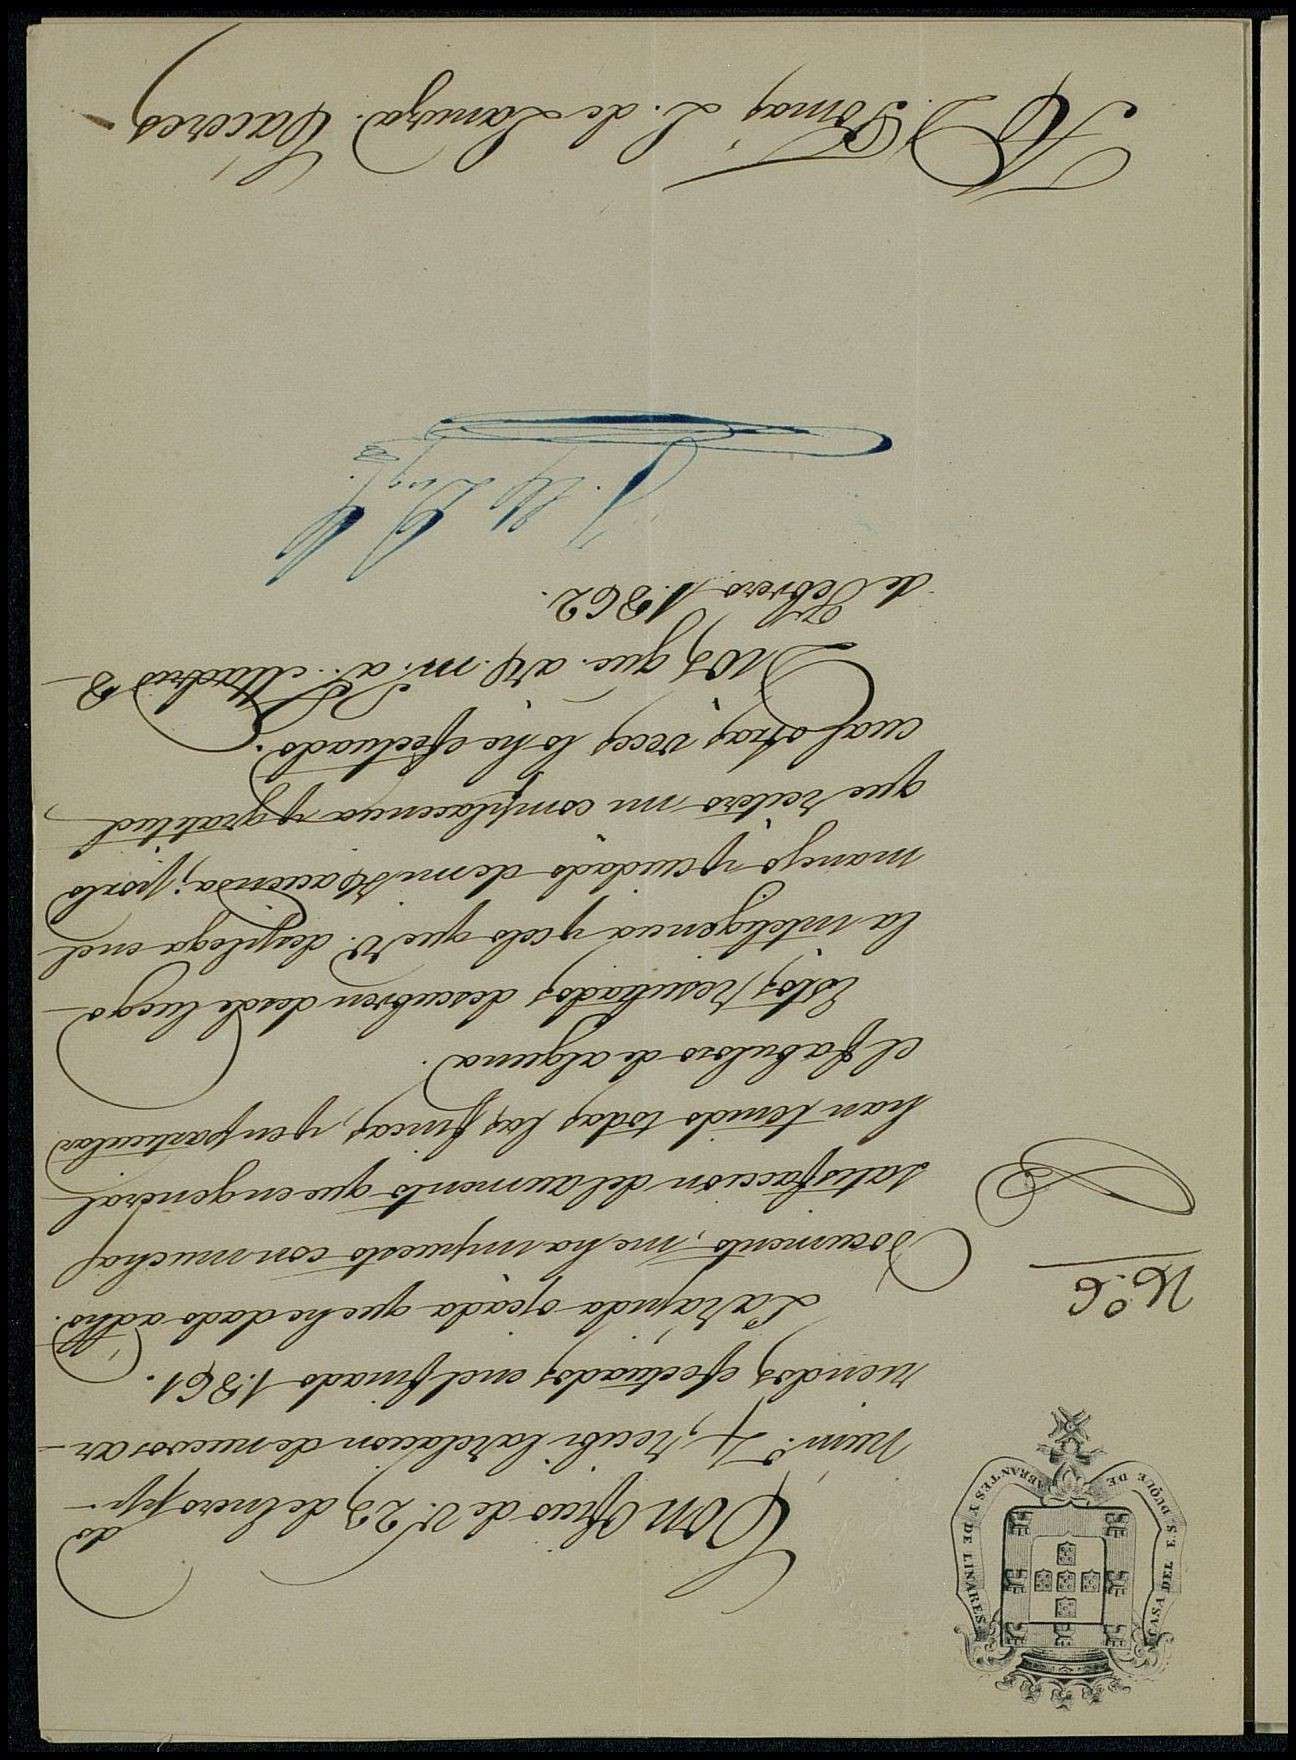 CASA DEL E. S. DUQUE DE ABRANTES Y DE LINARES
Con oficio de V. 23 de Enero pp.do
núm.º 4, recibí la relacion de nuevos ar-
riendos efectuados en el finado 1.861.
La rápida ojeada que he dado a dho.
N.º 6
Documento, me ha impuesto con mucha
satisfaccion del aumento que en general
han tenido todas las fincas, y en particular
el fabuloso de alguna.
Estos resultados descubren desde luego
la inteligencia y celo que V. desplega en el
manejo y cuidado de mi Hacienda; por lo
que reitero mi complacencia y gratitud
cual otras veces lo he efectuado.
Dios gue. a V. m. a. Madrid 8
de Febrero 1.862.
Sr. D. Tomas L. de Lanuza. Cáceres